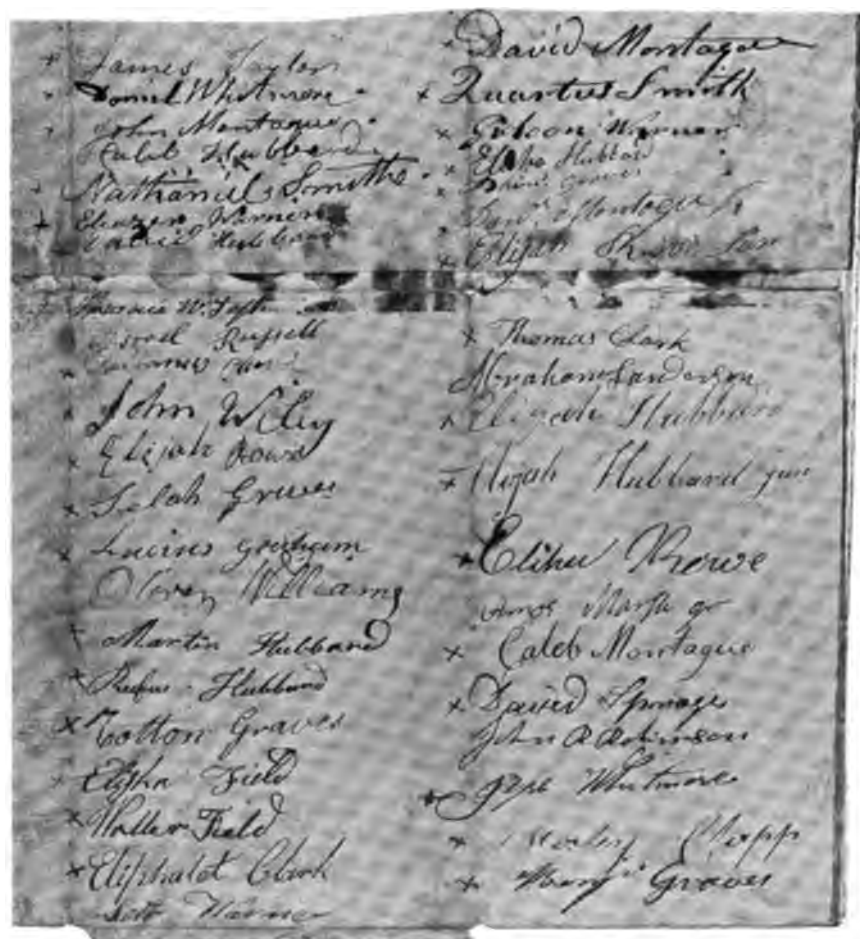 James Taylor
Daniel Whitmore
John Montague
Caleb Hubbard
Nathaniel Smith
Eleazer Warner
Hubbard
W. Taft
Israel Russell
John Wiley
Elijah Rowe
Selah Graves
Lucius Graham
Oliver Williams
Martin Hubbard
Rufus Hubbard
Cotton Graves
Elisha Field
Walter Field
Eliphalet Clark
Seth Warner
David Montague
Quartus Smith
Gideon Warner
Elisha Hubbard
Graves
Montague
Elijah
Thomas Clark
Abraham Sanderson
Elijah Hubbard
Elijah Hubbard jun
Elihu Rowe
Amos Marsh
Caleb Montague
David Sprague
John A Robinson
Whitmore
Clapp
Graves